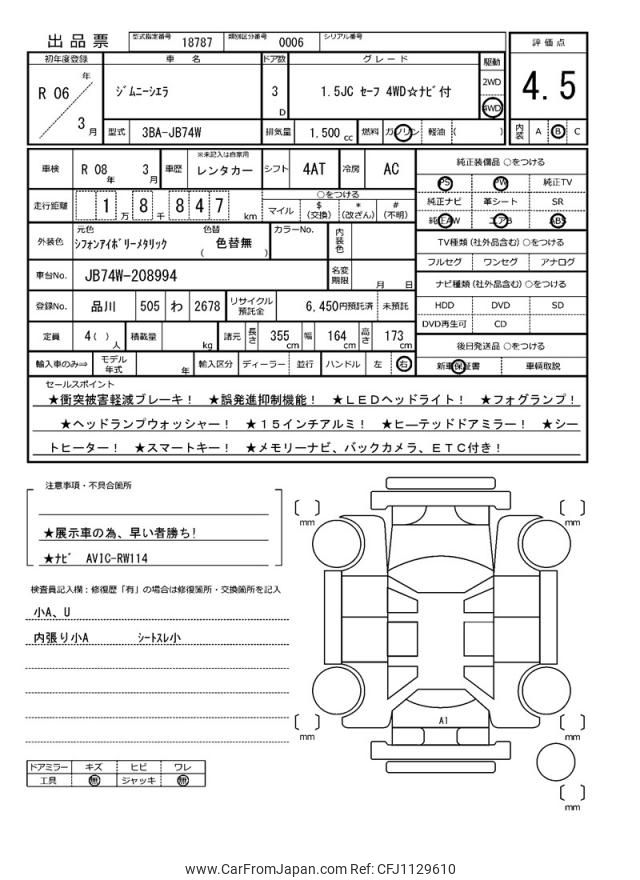 出品票
型式指定番号 18787 類別区分番号 0006 シリアル番号
評価点
4.5
内装 A B C
初年度登録 車名 ドア数 グレード 駆動
R 06 年 3 月
ジムニーシエラ 3 D 1.5JC セーフ 4WD☆ナビ付 2WD 4WD
型式 3BA-JB74W 排気量 1.500 cc 燃料 ガソリン 軽油 ( )
車検 R 08 年 3 月 車歴 ※未記入は自家用 レンタカー シフト 4AT 冷房 AC
走行距離 1 8 万 千 8 4 7 km
○をつける
マイル $(交換) *(改ざん) #(不明)
外装色 元色 シフォンアイボリーメタリック 色替 ( 色替無 ) カラーNo. 内装色
車台No. JB74W-208994 名変期限 月 日
登録No. 品川 505 わ 2678 リサイクル預託金 6,450円預託済 未預託
定員 4( ) 人 積載量 kg 諸元 長さ 355 cm 幅 164 cm 高さ 173 cm
輸入車のみ⇒ モデル年式 年 輸入区分 ディーラー 並行 ハンドル 左 右
純正装備品 ○をつける
PS PW 純正TV
純正ナビ 革シート SR
純正AW エアB ABS
TV種類 (社外品含む) ○をつける
フルセグ ワンセグ アナログ
ナビ種類 (社外品含む) ○をつける
HDD DVD SD
DVD再生可 CD
後日発送品 ○をつける
新車保証書 車輌取説
セールスポイント
★衝突被害軽減ブレーキ! ★誤発進抑制機能! ★LEDヘッドライト! ★フォグランプ!
★ヘッドランプウォッシャー! ★15インチアルミ! ★ヒーテッドドアミラー! ★シー
トヒーター! ★スマートキー! ★メモリーナビ、バックカメラ、ETC付き!
注意事項・不具合箇所
★展示車の為、早い者勝ち!
★ナビ AVIC-RW114
検査員記入欄:修復歴「有」の場合は修復箇所・交換箇所を記入
小A、U
内張り小A シートスレ小
ドアミラー キズ ヒビ ワレ
工具 無 ジャッキ 無
mm
mm
A1
mm
mm
mm
www.CarFromJapan.com Ref: CFJ1129610